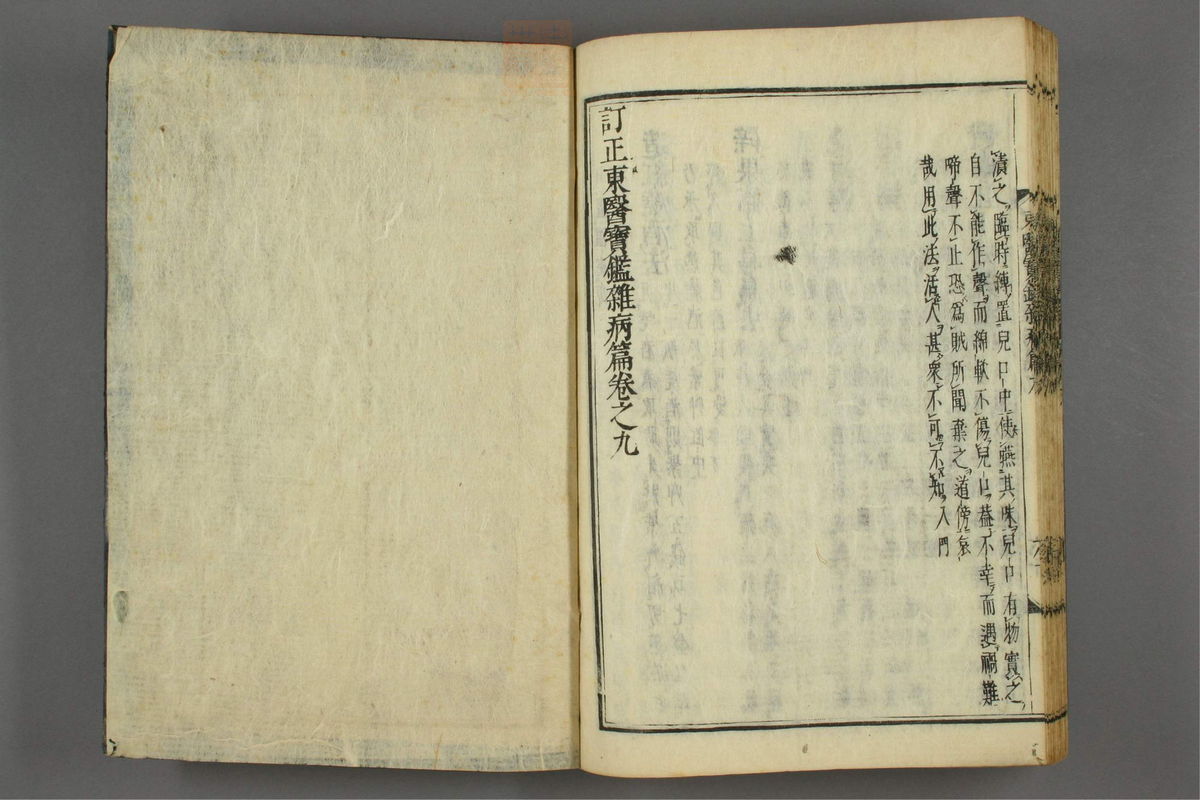 漬之臨時縛置兒口中使燕其味兒口有物實之
自不能作聲而綿軟不傷兒口蓋不幸而遇禍難
啼聲不止恐爲賊所聞棄之道傍哀
哉用此法活人甚衆不可不知入門
訂正東醫寶鑑雜病篇卷之九